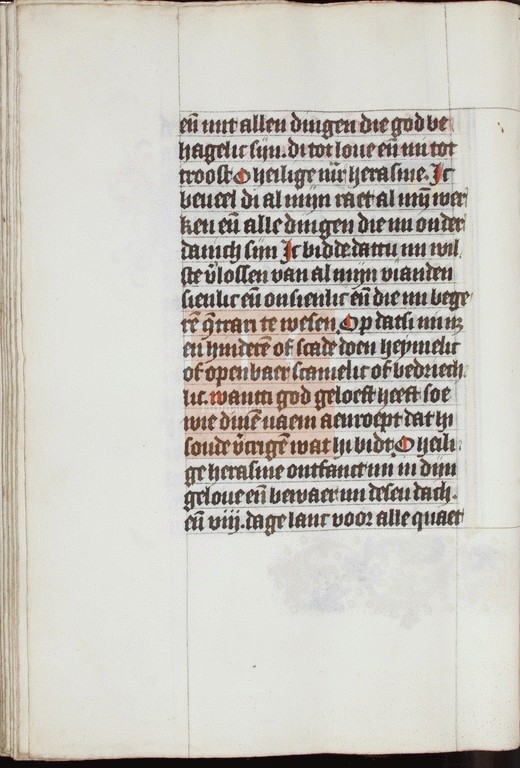 eñ uut allen dingen die god be
hagelic sijn. di tot loue eñ mi tot
troost O heilige mr̄ herasme. Ic
beueel di al mijn raet al mij̄ wer
ken eñ alle dingen die mi onder
danich sijn Ic bidde dattu mi wil
ste v̄lossen van al mijn vianden
sienlic eñ onsienlic eñ die mi bege
rē ꝯtrari te wesen Op dat si mi n
en hinderē of scade doen heymelic
of openbaer scamelic of bedriech
lic. want god geloeft heeft soe
wie dinē naem aenroept dat hi
soude v̄crigē wat hi bidt O heili
ge herasme ontfanct mi in dijn
geloue eñ bewaer mi desen dach.
eñ viij. dage lanc voor alle quaet